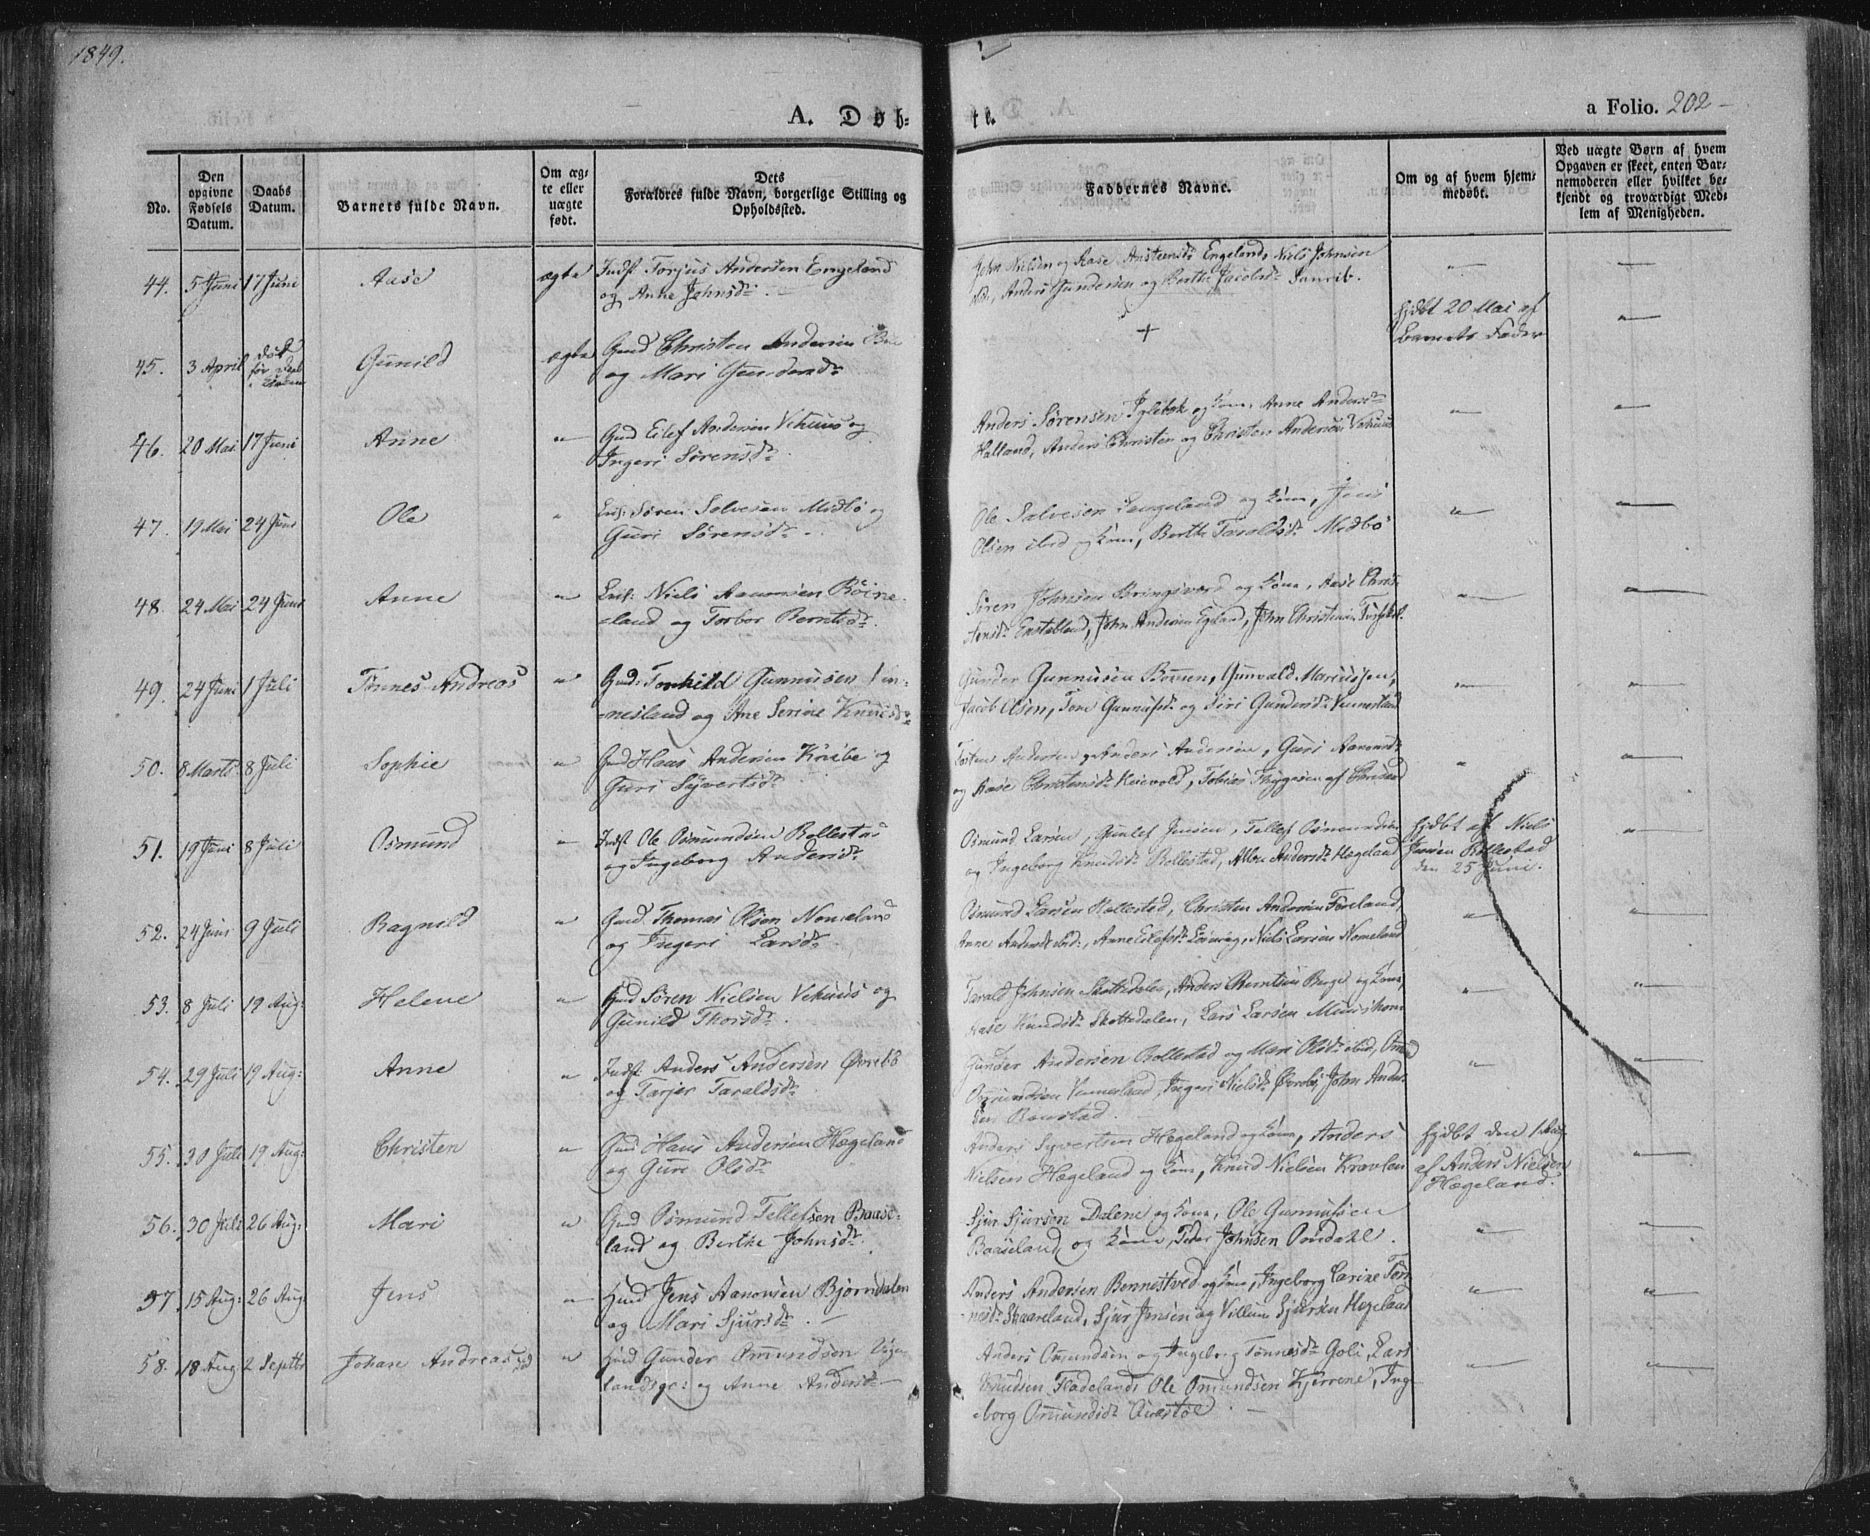 1849.
A. Døb-
te.
a Folio. 202
No.
Den opgivne Fødsels Datum.
Daabs Datum.
Barnets fulde Navn.
Om ægte eller uægte født.
Dets Forældres fulde Navn, borgerlige Stilling og Opholdssted.
Faddernes Navne.
Om og af hvem hjemmedøbt.
Ved uægte Børn af hvem Opgaven er skeet, enten Barnemoderen eller hvilket bekjendt og troværdigt Medlem af Menigheden.
44. 5 Juni 17 Juni Aase ægte Indst Torjus Andersen Engeland
og Anne Johnsdr.
John Nielsen og Aase Anstensdr Engeland, Niels Johnsen
ibd, Anders Gundersen og Berthe Jacobsdr
45. 3 April død før Daab Gunild ægte Gmd Christen Andersen
og Mari Gundersdr
+
hjdbt 20 Mai af
Barnets Fader
46. 20 Mai 17 Juni Anne " Gmd Eilef Andersen Vehuus og
Ingeri Sørensdr.
Anders Sørensen Iglebæk og Kone, Anne Andersdr
Halland, Anders Christen og Christen Andersen Vehuus
47. 19 Mai 24 Juni Ole " Søren Salvesen Midbø og
Guri Sørensdr.
Ole Salvesen Lengeland og Kone, Jens
Olsen ibid og Kone, Berthe Taraldsdr Midbø
48. 24 Mai 24 Juni Anne " Niels Aanonsen Røine-
land og Torbor Berntsdr.
Søren Johnsen Bringsværd og Kone, Aase Chris-
tensdr, John Andersen Egeland, John Christensen
49. 24 Juni 1 Juli Tønnes Andreas " Gmd: Torkild Gunnusen Ven-
nesland og Ane Serine Knudsdr
Gunder Gunnusen Bommen, Gunvald Mariussen,
Jacob Olsen, Tone Gunnufsdr og Siri Gundersdr Vennesland
50. 8 Marts 8 Juli Sophie " Gmd Hans Andersen Kribe og
Guri Syvertsdr
Tosten Andersen, Anders Andersen, Guri Aanonsdr
og Aase Christensdr, Tobias Thygesen af Chrsand
51. 19 Juni 8 Juli Osmund " Indst Ole Osmundsen Rollestad
og Ingeborg Andersdr.
Osmund Larsen, Gunlef Jensen, Tellef Osmundsen
og Ingeborg Knudsdr Rollestad, Andersdr Hægeland
hjdbt af Niels
Jensen Rollestad
den 25 Juni.
52. 24 Juni 9 Juli Ragnild " Gmd Thomas Olsen Nomeland
og Ingeri Larsdr.
Osmund Larsen Rollestad, Christen Andersen Fæeland,
Anne Andersdr ibid:, Anne Eilefsdr, Niels Larsen Nomeland
53. 8 Juli 19 Aug: Helene " Gmd Søren Nielsen Vehuus og
Gunild Thorsdr.
Tarald Johnsen Skottedalen, Anders Berntsen Berge og Kone,
Aase Knudsdr Skottedalen, Lars Larsen
54. 29 Juli 19 Aug: Anne " Indst Anders Andersen Øvrebø
og Tarjer Taraldsdr.
Gunder Andersen Rollestad og Mari Olsdr ibid,
Osmundsen Vennesland, Ingeri Nielsdr Øvrebø, John Ander-
sen
55. 30 Juli 19 Aug: Christen " Gmd Hans Andersen Hægeland
og Gure Olsdr
Anders Syvertsen Hægeland og Kone, Anders
Nielsen Hægeland og Kone, Knud Nielsen Kravlen
hjdbt den 1 Aug
af Anders Nielsen
Hægeland.
56. 30 Juli 26 Aug: Mari " Gmd Osmund Tellefsen Baase-
land og Berthe Johnsdr.
Sjur Sjursen Dalene og Kone, Ole Gunnufsen
Baaseland og Kone, Peder Johnsen Omdahl.
57. 15 Aug: 26 Aug: Jens " Hmd Jens Aanonsen Bjørndalen
og Mari Sjursdr.
Anders Andersen Bennestved og Kone, Ingeborg Carine Tøn-
nesdr Skaareland, Sjur Jensen og Villum Sjursen Hægeland
58. 18 Aug 2 Septbr Johan Andreas " Hmd Gunder Omundsen
landsgr: og Anne Andersdr
Anders Omundsen og Ingeborg Tønnesdr Goli, Lars
Knudsen Fladeland, Ole Omundsen Kjerrene, Inge-
borg Omundsdr